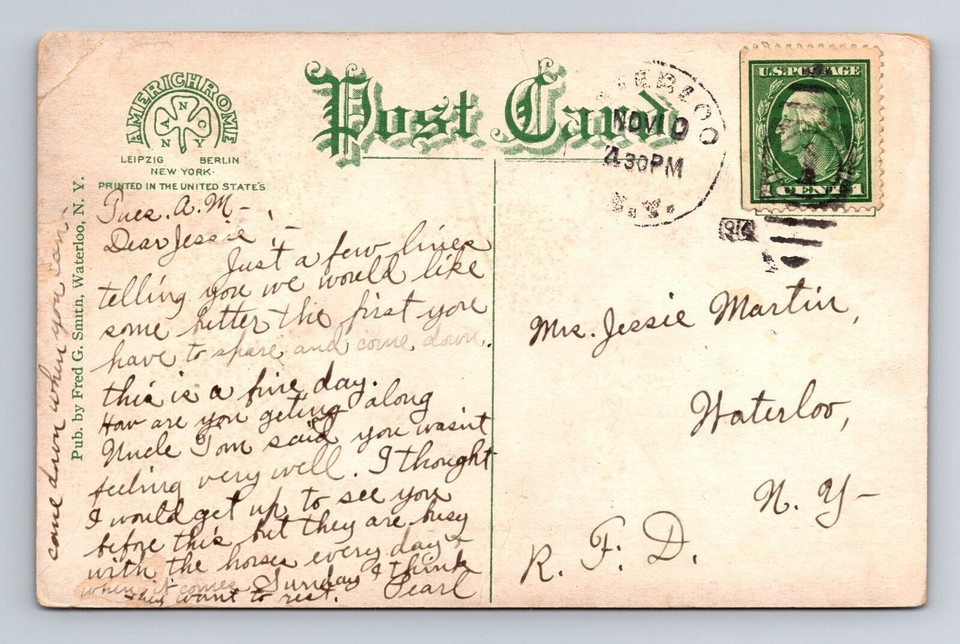 AMERICHROME
A N C Y N
LEIPZIG BERLIN
NEW YORK
PRINTED IN THE UNITED STATES
Post Card
NOV 9
4 30 PM
N.Y.
U.S. POSTAGE
1 CENT 1
Pub. by Fred G. Smith, Waterloo, N. Y.
Tues. A.M-
Dear Jessie;-
Just a few lines
telling you we would like
some butter the first you
have to spare and come down.
this is a fine day.
How are you geting along
Uncle Tom said you wasn't
feeling very well. I thought
I would get up to see you
before this but they are busy
with the horses every day &
when it comes Sunday I think
they want to rest. Pearl
come down when you can.
Mrs. Jessie Martin,
Waterloo,
N. Y-
R. F. D.